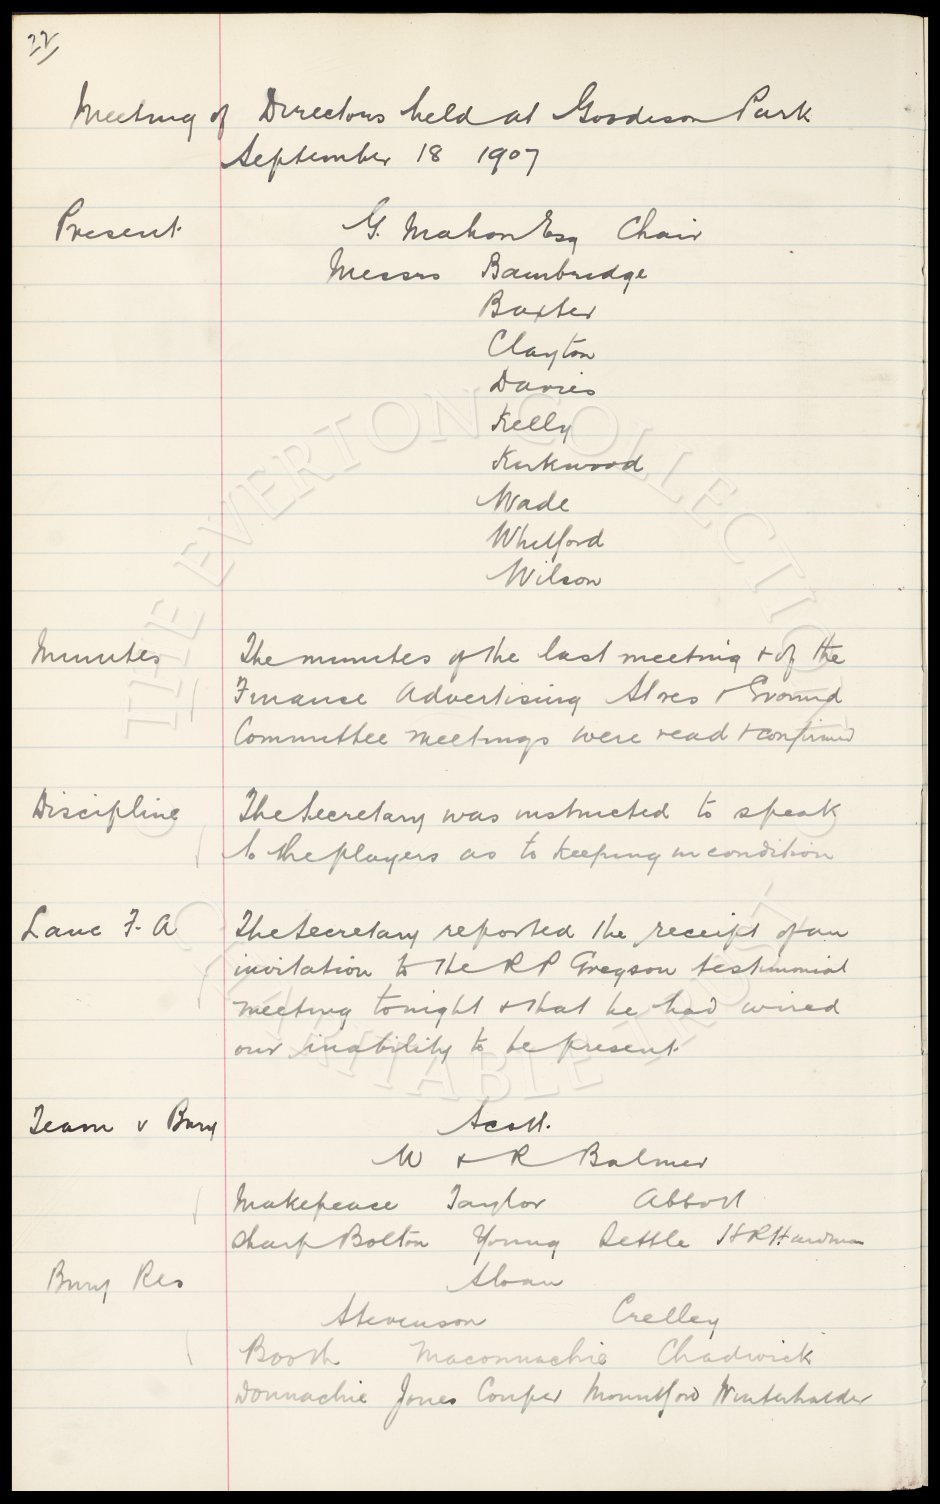 22
Meeting of Directors held at Goodison Park
September 18 1907
Present G. Mahon Esq Chair
Messrs Bainbridge
Baxter
Clayton
Davies
Kelly
Kirkwood
Wade
Whitford
Wilson
Minutes The minutes of the last meeting & of the
Finance Advertising Stres & Ground
Committee meetings were read & confirmed
Discipline The Secretary was instructed to speak
to the players as to keeping in condition
Lanc F. A The Secretary reported the receipt of an
invitation to the R P Gregson testimonial
meeting tonight & that he had wired
our inability to be present.
Team v Bury Scott.
W & R Balmer
Makepeace Taylor Abbott
Sharp Bolton Young Settle H P Hardman
Bury Res Sloan
Stevenson Crelley
Booth Maconnachie Chadwick
Donnachie Jones Couper Mountford Winterhalder
THE EVERTON COLLECTION
CHARITABLE TRUST